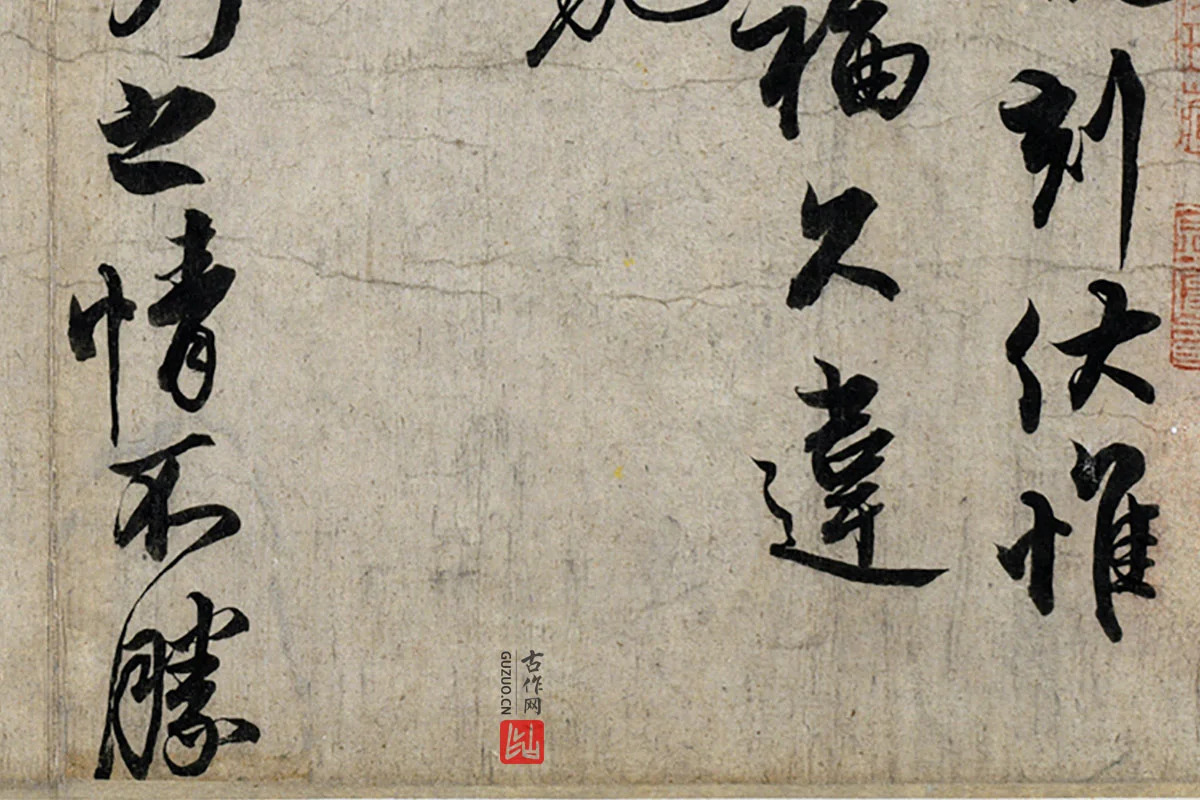 刻伏惟
福久違
之情不勝
古作网
GUZUO.CN